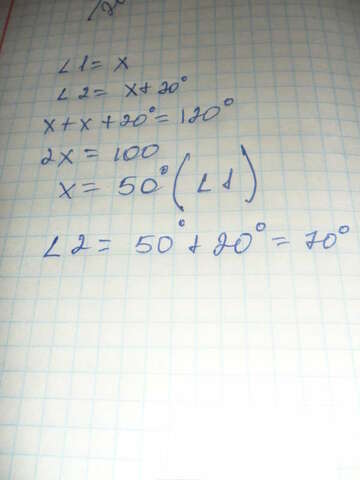 ∠1 = x
∠2 = x + 20°
x + x + 20° = 120°
2x = 100
x = 50° (∠1)
∠2 = 50° + 20° = 70°